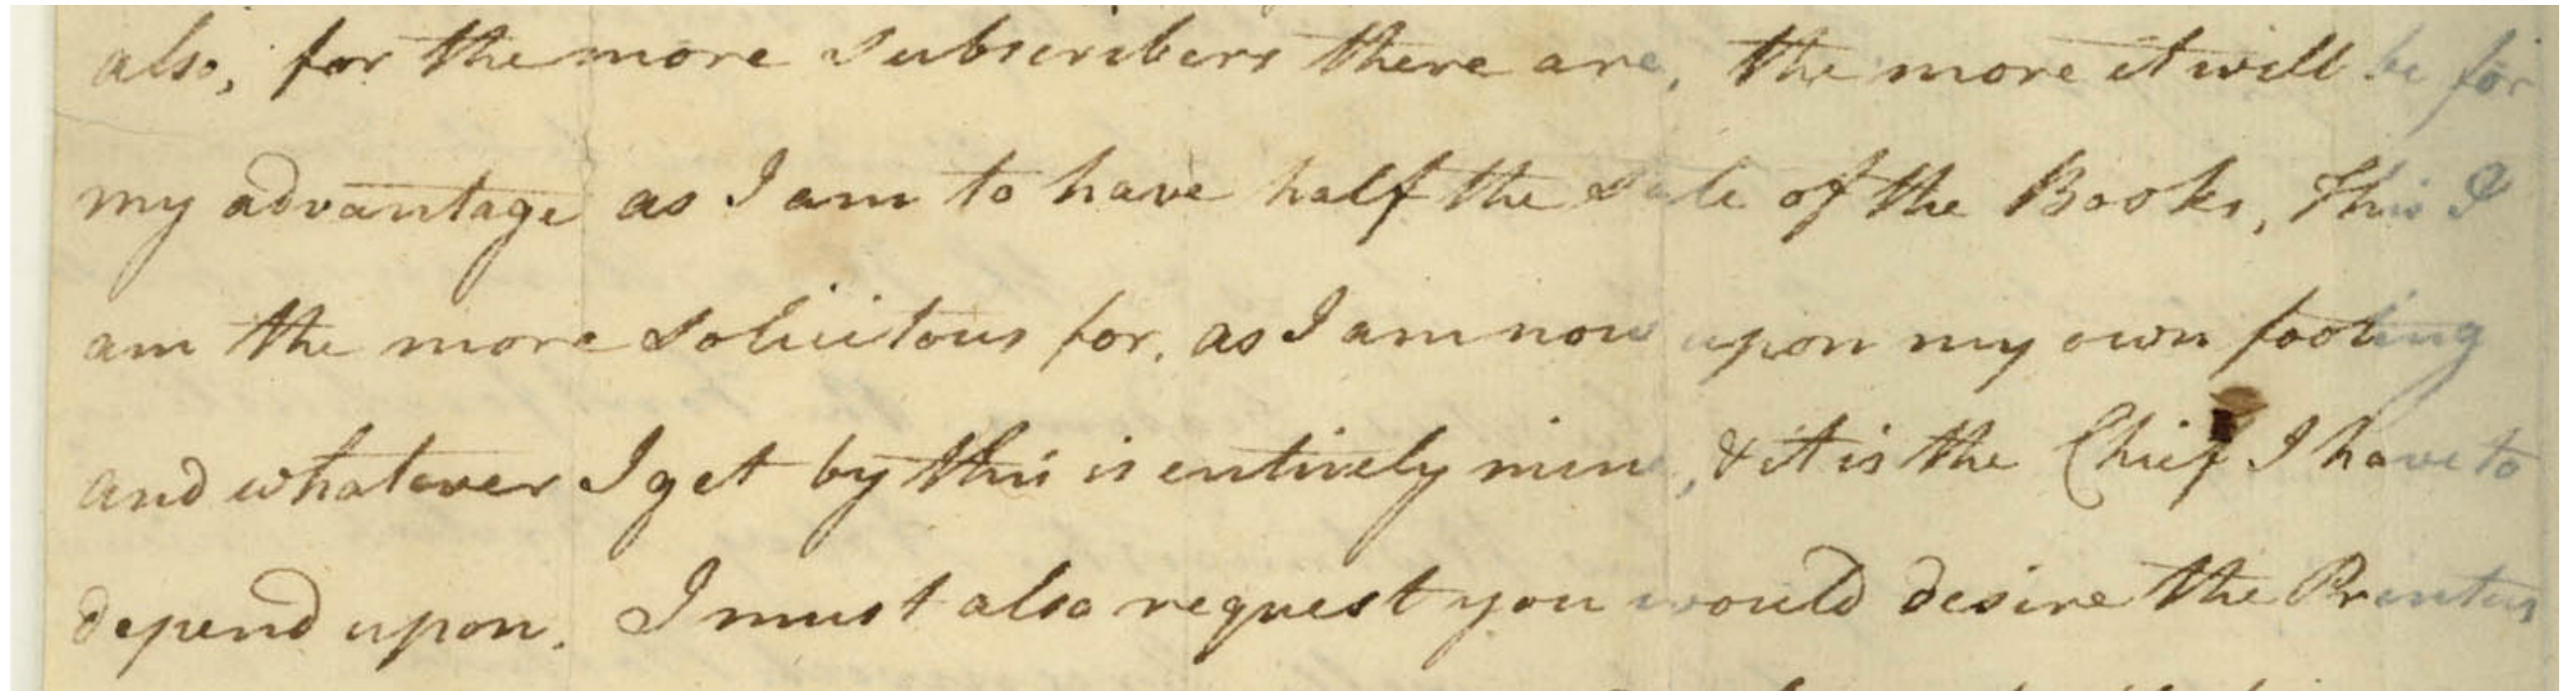 also, for the more subscribers there are, the more it will be for
my advantage as I am to have half the sale of the Books, This I
am the more solicitous for, as I am now upon my own footing
and whatever I get by this is entirely mine, & it is the Chief I have to
depend upon. I must also request you would desire the Printers